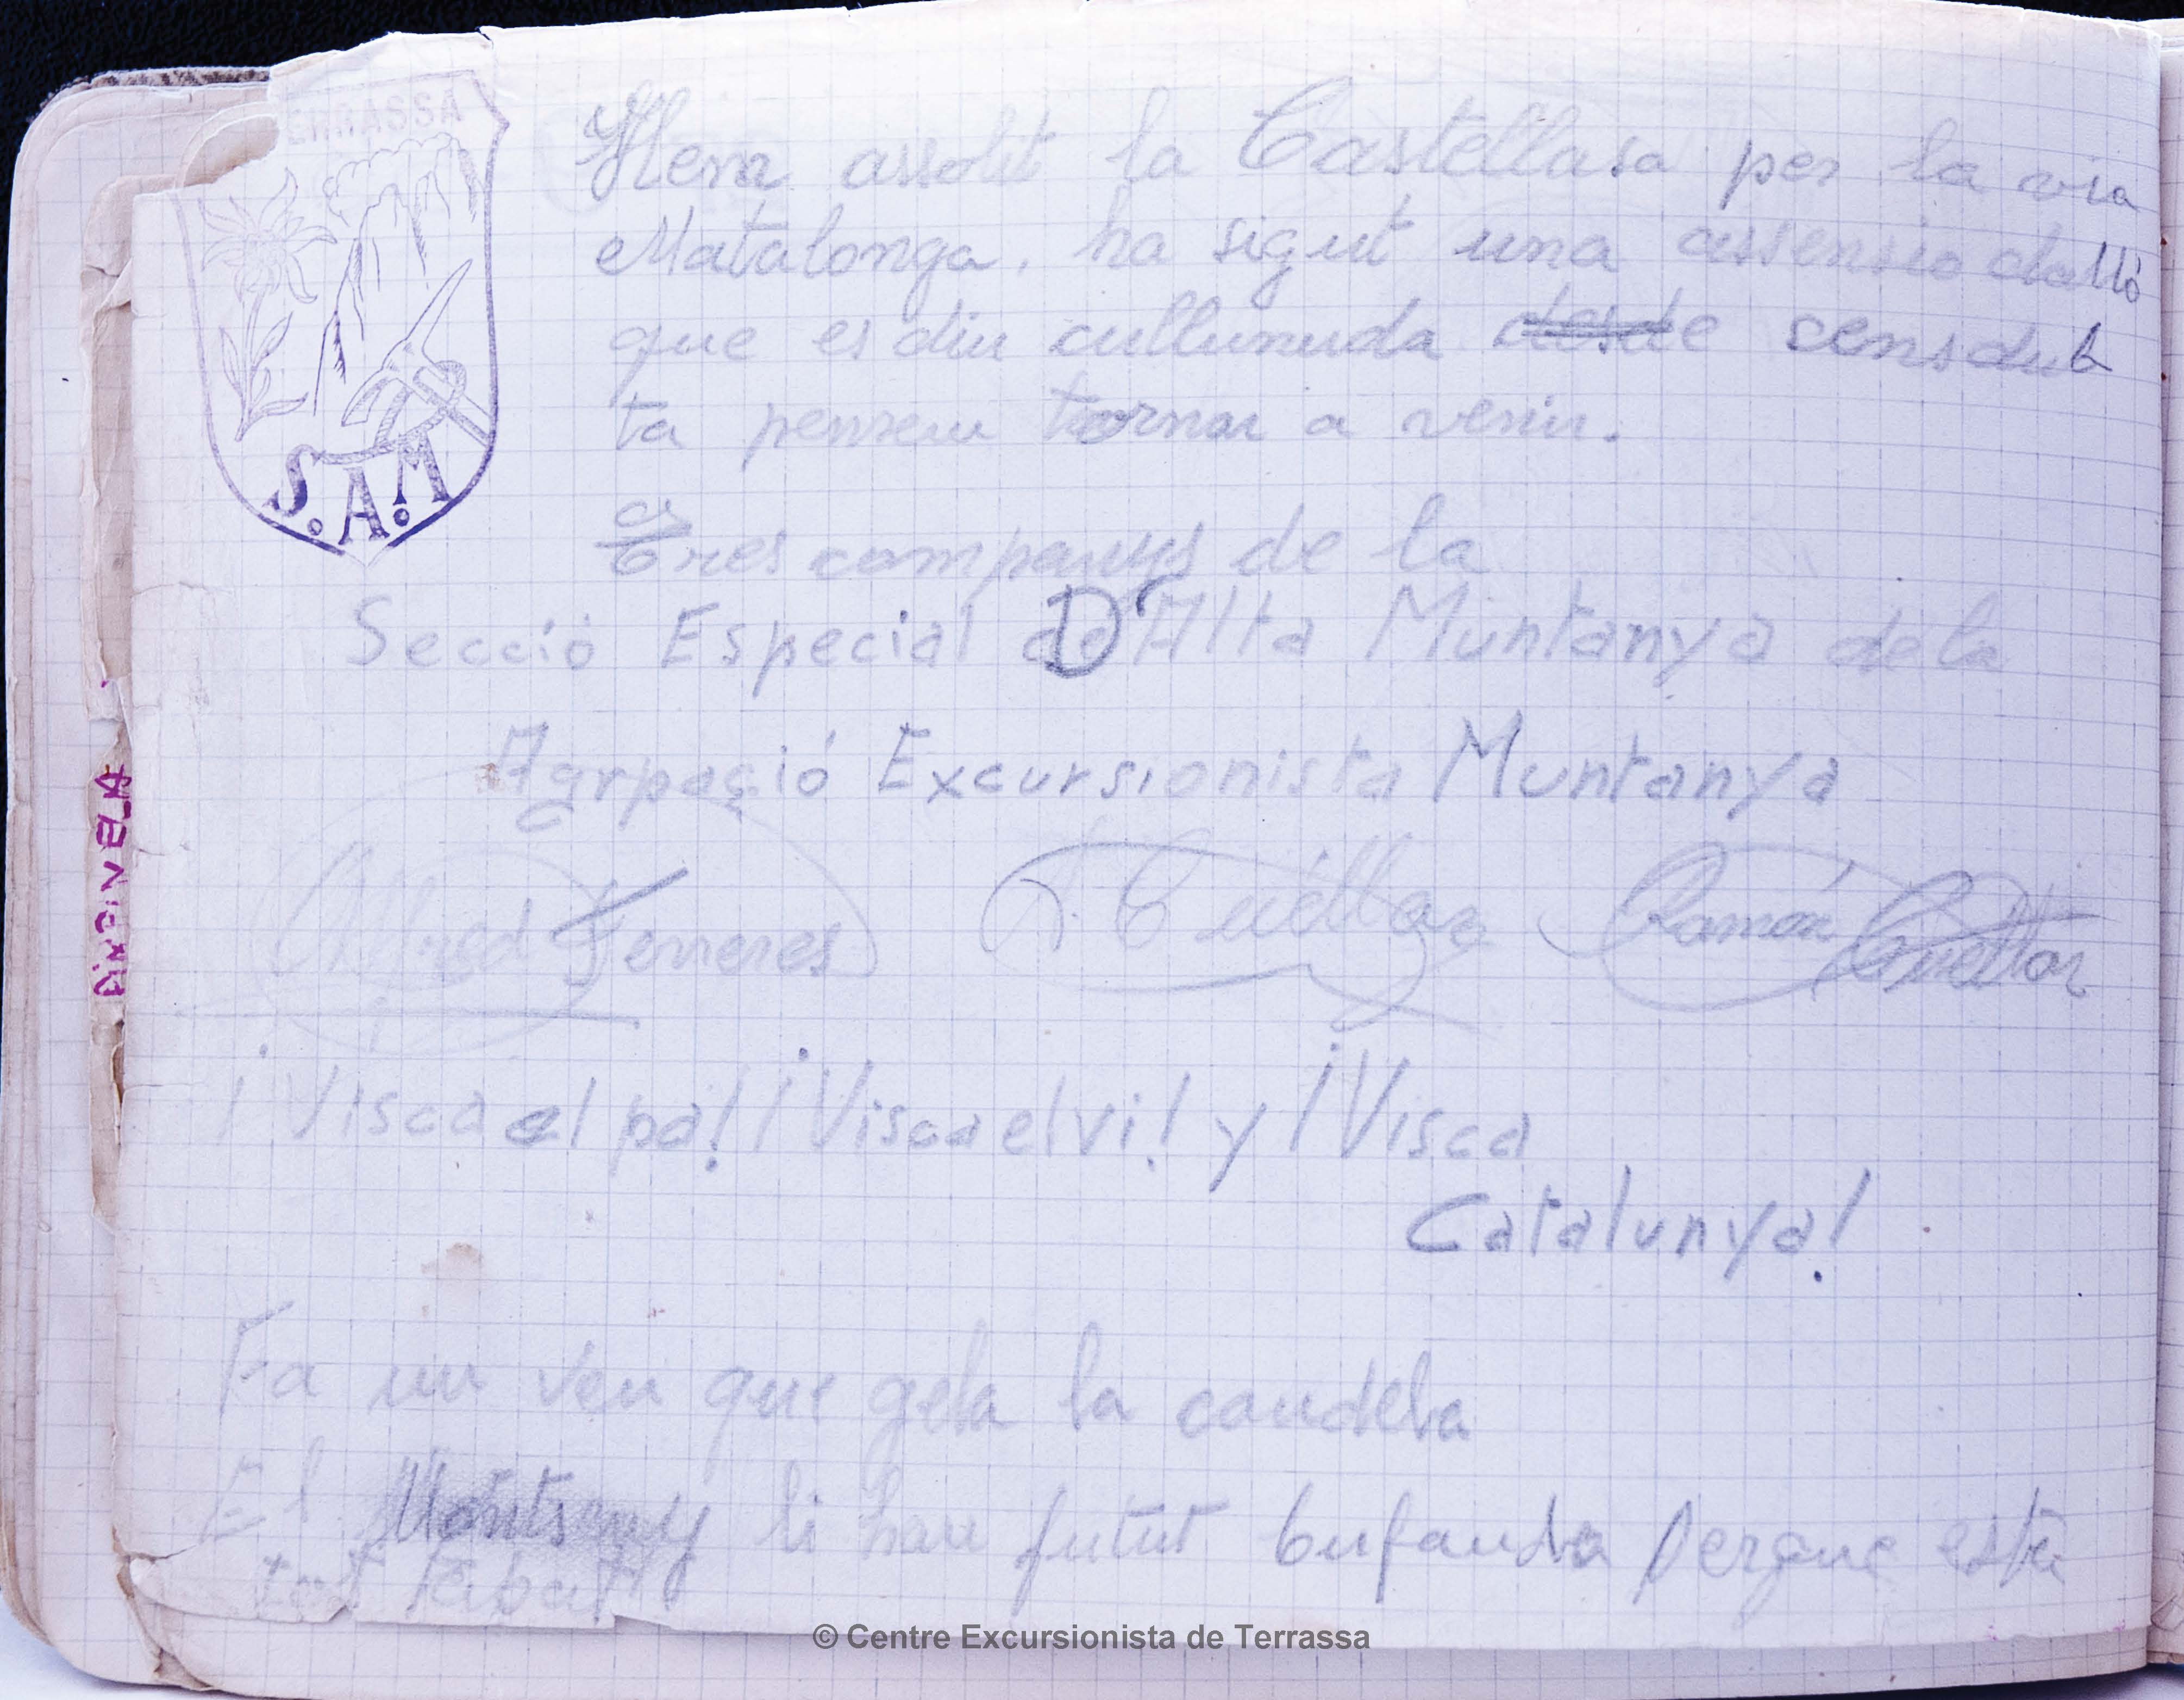 ERRASSA
S.A.M
Hem assolit la Castellasa per la via
Matalonga, ha sigut una assensio dalló
que es diu cullunuda desde sens dub
ta pensem tornar a venir.
Tres companys de la
Secció Especial D'Alta Muntanya de la
Agrpació Excursionista Muntanya
Alfred Ferreres A. Cuéllar Ramón Cuellar
¡Visca el pa! ¡Visca el vi! y ¡Visca
Catalunya!
Fa un ven que gela la candela
El Montseny li han futut bufanda perque está
tot tabat
© Centre Excursionista de Terrassa